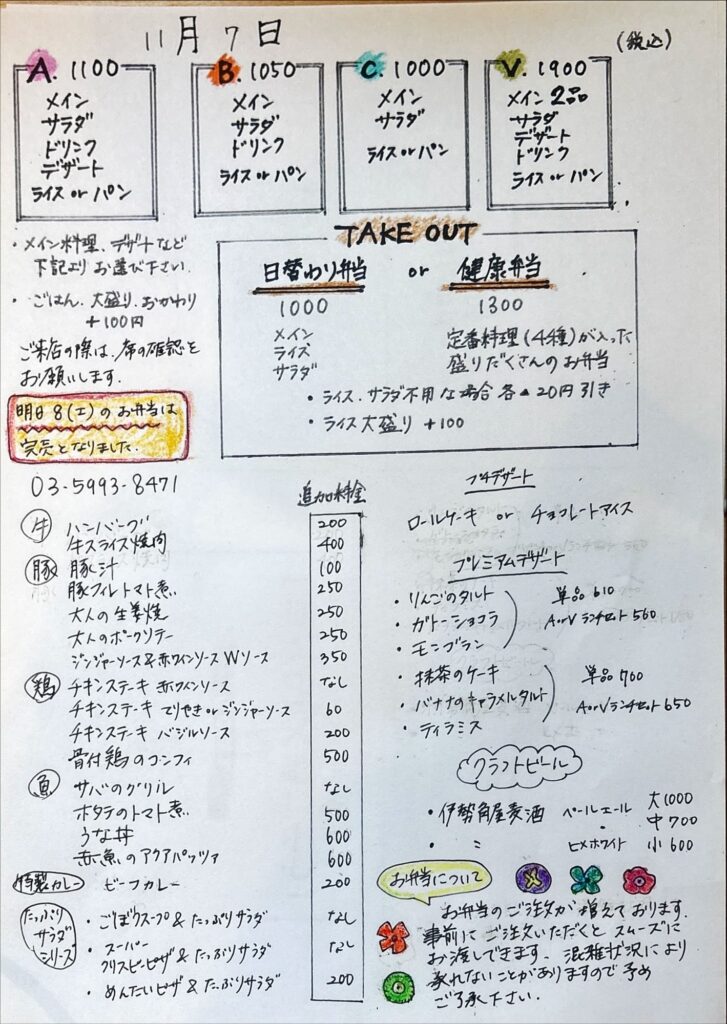 11月7日
(税込)
A. 1100
メイン
サラダ
ドリンク
デザート
ライス or パン
B. 1050
メイン
サラダ
ドリンク
ライス or パン
C. 1000
メイン
サラダ
ライス or パン
V. 1900
メイン 2品
サラダ
デザート
ドリンク
ライス or パン
・メイン料理、デザートなど
下記より お選び下さい.
・ごはん. 大盛り. おかわり
+100円
ご来店の際は. 席の確認を
お願いします.
明日 8(土)の お弁当は
完売となりました.
03-5993-8471
TAKE OUT
日替わり弁当 or 健康弁当
1000
メイン
ライス
サラダ
1300
定番料理(4種)が入った
盛りだくさんのお弁当
・ライス. サラダ不用な場合 各▲20円引き
・ライス大盛り +100
追加料金
牛 ハンバーグ 200
牛スライス焼肉 400
豚 豚汁 100
豚フィレトマト煮 250
大人の生姜焼 250
大人のポークソテー 250
ジンジャーソース&赤ワインソース Wソース 350
鶏 チキンステーキ 赤ワインソース なし
チキンステーキ てりやき or ジンジャーソース 60
チキンステーキ バジルソース 200
骨付鶏のコンフィ 500
魚 サバのグリル なし
ホタテのトマト煮 500
うな丼 600
赤魚のアクアパッツァ 600
特製カレー ビーフカレー 200
たっぷりサラダシリーズ
・ごぼうスープ & たっぷりサラダ なし
・スーパー
クリスピーピザ & たっぷりサラダ なし
・めんたいピザ & たっぷりサラダ 200
プチデザート
ロールケーキ or チョコレートアイス
プレミアムデザート
・りんごのタルト
・ガトーショコラ
・モンブラン
単品 610
AorV ランチセット 560
・抹茶のケーキ
・バナナのキャラメルタルト
・ティラミス
単品 700
AorV ランチセット 650
クラフトビール
・伊勢角屋麦酒 ペールエール
・ 〃 ヒメホワイト
大1000
中 700
小 600
お弁当について
お弁当のご注文が増えております.
事前にご注文いただくと スムーズに
お渡しできます. 混雑状況により
承れないことがありますので予め
ご了承下さい.